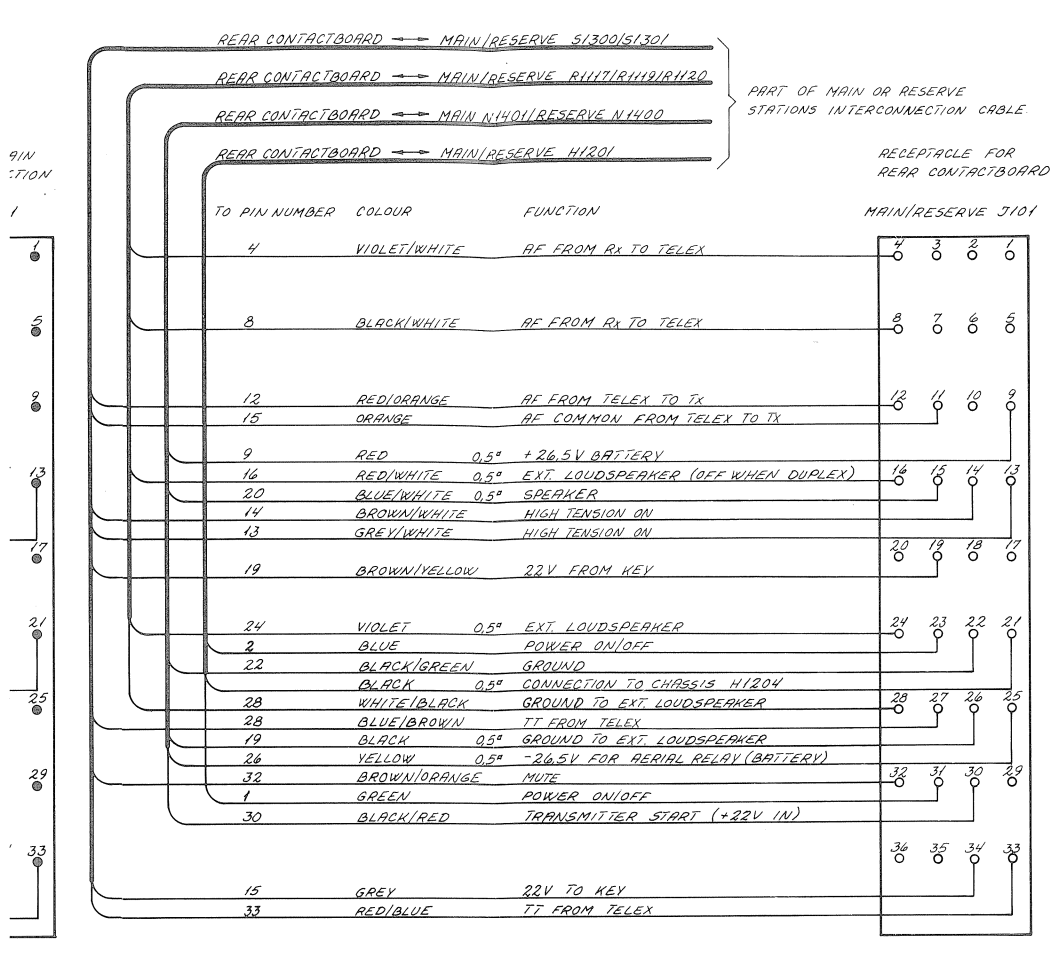 REAR CONTACTBOARD ↔ MAIN/RESERVE S1300/S1301
REAR CONTACTBOARD ↔ MAIN/RESERVE R1117/R1119/R1120
REAR CONTACTBOARD ↔ MAIN N1401/RESERVE N1400
REAR CONTACTBOARD ↔ MAIN/RESERVE H1201
PART OF MAIN OR RESERVE
STATIONS INTERCONNECTION CABLE.
AIN
CTION
1
RECEPTACLE FOR
REAR CONTACTBOARD
MAIN/RESERVE J101
TO PIN NUMBER COLOUR FUNCTION
4 VIOLET/WHITE AF FROM Rx TO TELEX
8 BLACK/WHITE AF FROM Rx TO TELEX
12 RED/ORANGE AF FROM TELEX TO Tx
15 ORANGE AF COMMON FROM TELEX TO Tx
9 RED 0,5▫ +26,5V BATTERY
16 RED/WHITE 0,5▫ EXT. LOUDSPEAKER (OFF WHEN DUPLEX)
20 BLUE/WHITE 0,5▫ SPEAKER
14 BROWN/WHITE HIGH TENSION ON
13 GREY/WHITE HIGH TENSION ON
19 BROWN/YELLOW 22V FROM KEY
24 VIOLET 0,5▫ EXT. LOUDSPEAKER
2 BLUE POWER ON/OFF
22 BLACK/GREEN GROUND
BLACK 0,5▫ CONNECTION TO CHASSIS H1204
28 WHITE/BLACK GROUND TO EXT. LOUDSPEAKER
28 BLUE/BROWN TT FROM TELEX
19 BLACK 0,5▫ GROUND TO EXT. LOUDSPEAKER
26 YELLOW 0,5▫ -26,5V FOR AERIAL RELAY (BATTERY)
32 BROWN/ORANGE MUTE
1 GREEN POWER ON/OFF
30 BLACK/RED TRANSMITTER START (+22V IN)
15 GREY 22V TO KEY
33 RED/BLUE TT FROM TELEX
1
5
9
13
17
21
25
29
33
4 3 2 1
8 7 6 5
12 11 10 9
16 15 14 13
20 19 18 17
24 23 22 21
28 27 26 25
32 31 30 29
36 35 34 33